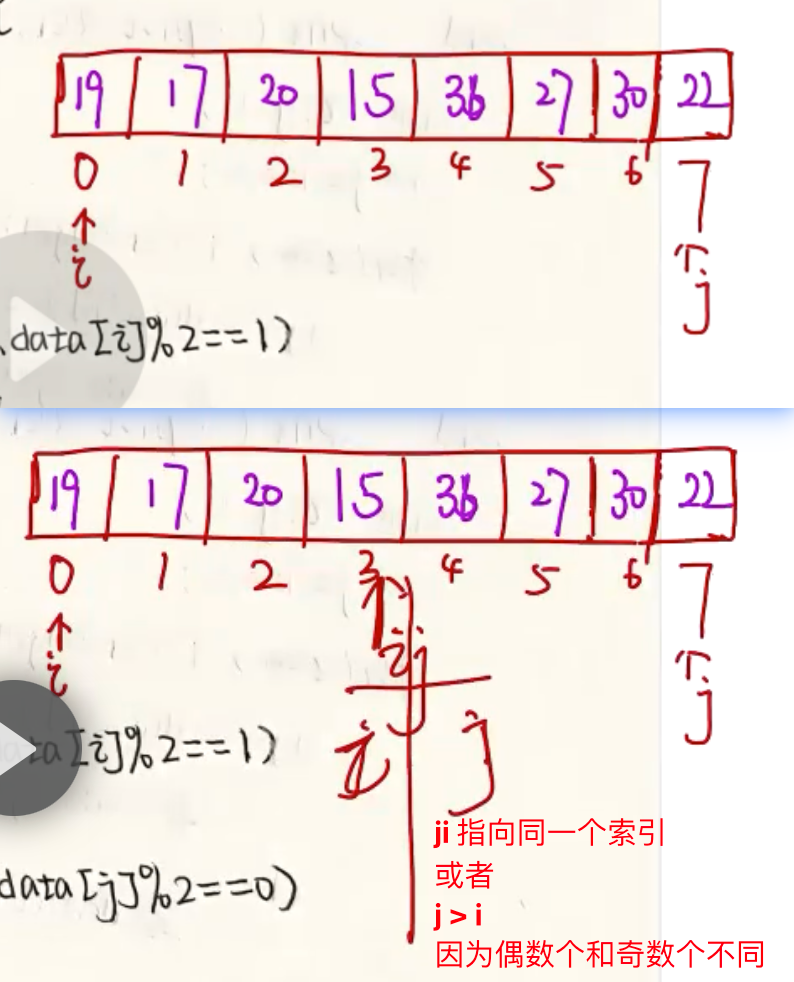 19 17 20 15 36 27 30 22
0 1 2 3 4 5 6 7
i j
data[i]%2==1)
19 17 20 15 36 27 30 22
0 1 2 3 4 5 6 7
i i j j
i j
ata[i]%2==1)
data[j]%2==0)
ji 指向同一个索引
或者
j > i
因为偶数个和奇数个不同